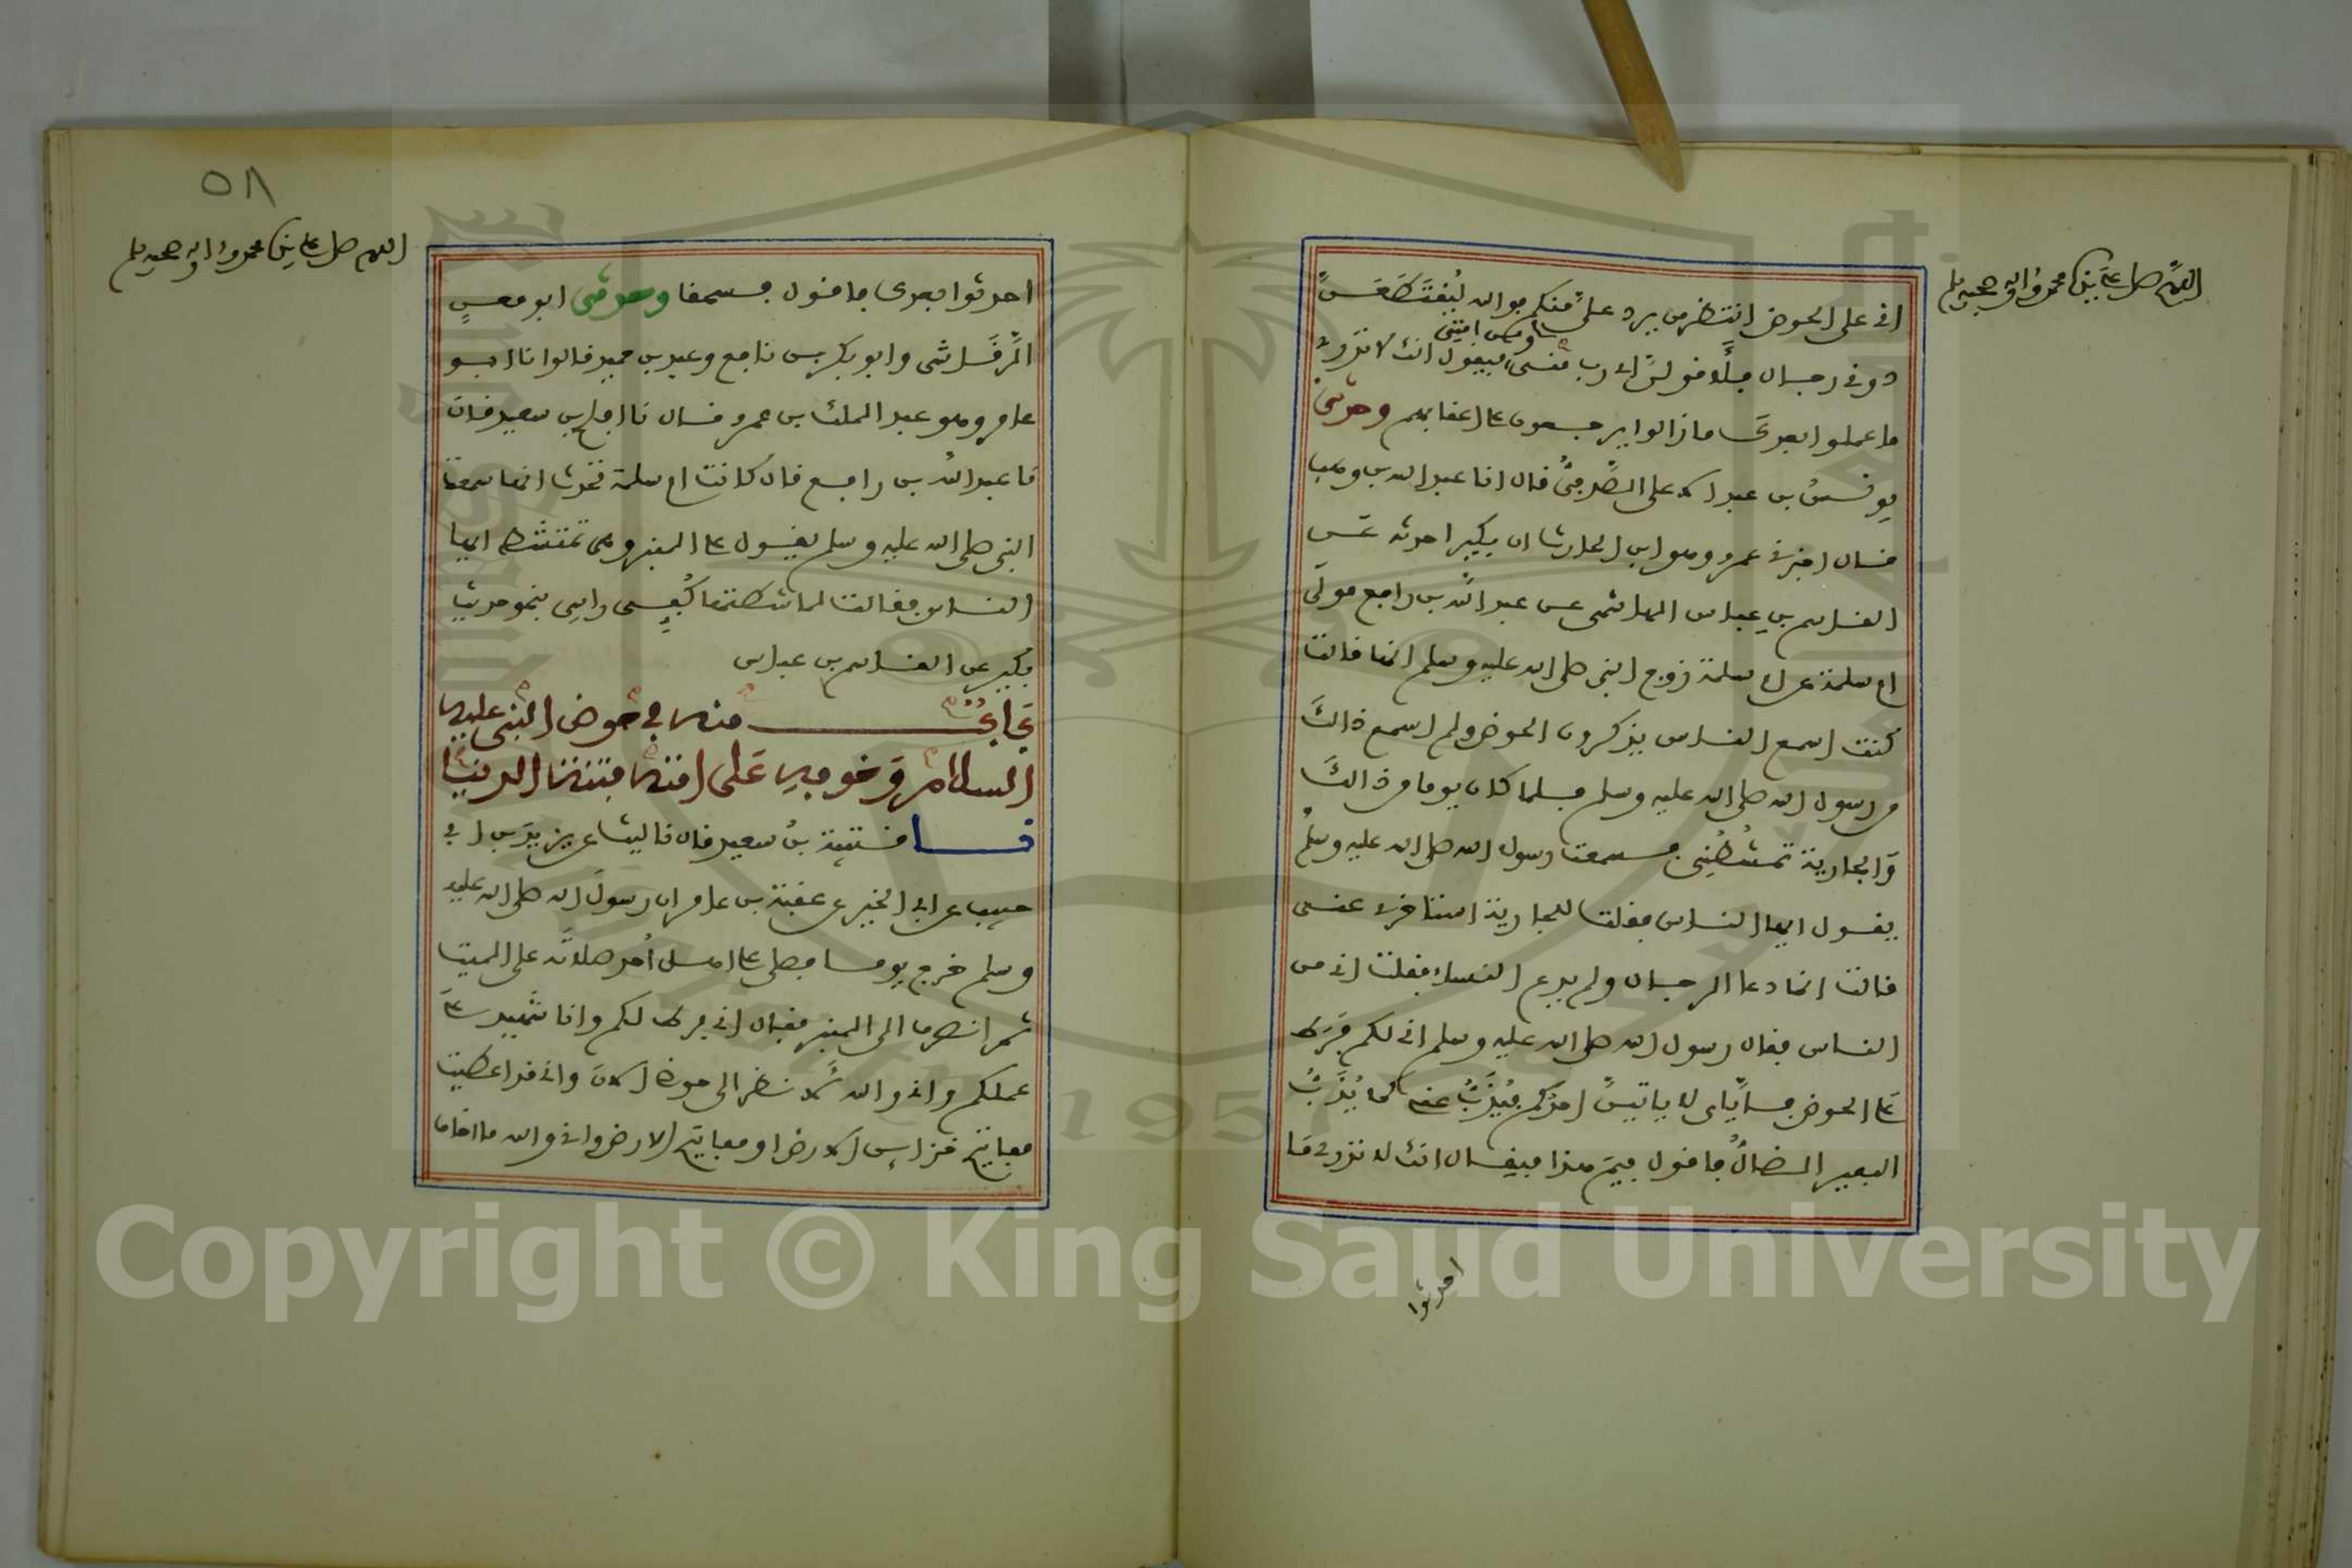 اللهم صل على نبينا محمد واله وصحبه وسلم
اني على الحوض انتظر من يرد علي منكم فوالله ليقتطعن
دوني رجال فلأقولن اي رب مني ومن امتي فيقول انك لا تدري
ما عملوا بعدك ما زالوا يرجعون على اعقابهم وحدثني
يونس بن عبد الاعلى الصدفي قال انا عبد الله بن وهب
قال اخبرني عمرو وهو ابن الحارث ان بكيرا حدثه عن
القاسم بن عباس الهاشمي عن عبد الله بن رافع مولى
ام سلمة عن ام سلمة زوج النبي صلى الله عليه وسلم انها قالت
كنت اسمع الناس يذكرون الحوض ولم اسمع ذالك
من رسول الله صلى الله عليه وسلم فلما كان يوما من ذالك
والجارية تمشطني فسمعت رسول الله صلى الله عليه وسلم
يقول ايها الناس فقلت للجارية استاخري عني
قالت انما دعا الرجال ولم يدع النساء فقلت اني من
الناس فقال رسول الله صلى الله عليه وسلم اني لكم فرط
على الحوض فاياي لا ياتين احدكم فيذب عني كما يذب
البعير الضال فاقول فيم هذا فيقال انك لا تدري ما
احدثوا
٥٨
اللهم صل على نبينا محمد واله وصحبه وسلم
احدثوا بعدك فاقول فسحقا وحدثني ابو معن
الرقاشي وابو بكر بن نافع وعبد بن حميد قالوا نا ابو
عامر وهو عبد الملك بن عمرو قال نا افلح بن سعيد قال
نا عبد الله بن رافع قال كانت ام سلمة تحدث انها سمعت
النبي صلى الله عليه وسلم يقول على المنبر وهي تمتشط ايها
الناس فقالت لماشطتها كفي راسي بنحو حديث
بكير عن القاسم بن عباس
باب منه في حوض النبي عليه
السلام وخوفه على امته فتنة الدنيا
نا قتيبة بن سعيد قال نا ليث عن يزيد بن ابي
حبيب عن ابي الخير عن عقبة بن عامر ان رسول الله صلى الله عليه
وسلم خرج يوما فصلى على اهل احد صلاته على الميت
ثم انصرف الى المنبر فقال اني فرط لكم وانا شهيد
عليكم واني والله لانظر الى حوضي الان واني قد اعطيت
مفاتيح خزائن الارض او مفاتيح الارض واني والله ما اخاف
Copyright © King Saud University
1957